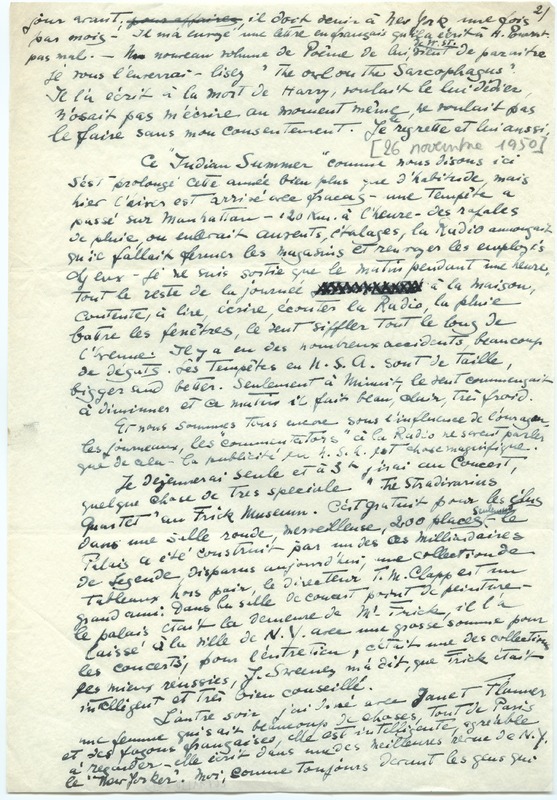 2/
jour avant, pour affaires, il doit venir à New York une fois
par mois - Il m'a envoyé une lettre en français qu'il a écrit à H.
pas mal. - Un nouveau volume de Poême de lui vient de paraitre
Je vous l'enverrai - lisez "The owl in the Sarcophagus".
Il l'a écrit à la mort de Harry, voulait le lui dédier,
n'osait pas m'écrire au moment même, ne voulait pas
le faire sans mon consentement. Je le regrette et lui aussi
[26 novembre 1950]
Ce "Indian Summer" comme nous disons ici
s'est prolongé cette année bien plus que d'habitude, mais
hier l'hiver est arrivé avec fracas - une Tempête a
passé sur Manhattan - 120 Km. à l'heure - des rafales
de pluie, vent enlevait auvents, étalages, la Radio annonçait
qu'il fallait fermer les magasins et renvoyer les employés
chez eux - Je ne suis sortie que le matin pendant une heure,
tout le reste de la journée à la maison,
contente, à lire, écrire, écouter la Radio, la pluie
battre les fenêtres, le vent siffler tout le long de
l'Avenue. Il y a eu des nombreux accidents, beaucoup
de dégats. Les Tempêtes en U.S.A. sont de taille,
bigger and better. Seulement à Minuit, le vent commençait
à diminuer et ce matin il fait beau, clair, très froid.
Et nous sommes tous encore sous l'influence de l'ouragan
les journaux, les commentators à la Radio ne servent parler
que de cela - la publicité en U.S.A. est chose magnifique.
Je déjeunerai seule et à 3h j'irai au Concert,
quelque chose de très speciale "The Stradivarius
Quartet" au Frick Museum. C'est gratuit pour les
dans une salle ronde, merveilleuse, 200 places seulement - le
Palais a été construit par un des ces milliardaires
de Légende, disparus aujourd'hui, une collection de
tableaux hors pair, le directeur T.M. Clapp est un
grand ami. Dans la salle de concert point de peinture -
le palais était la demeure de Mr. Frick, il l'a
laissé à la ville de N.Y. avec une grosse somme pour
les concerts, pour l'entretien, c'était une des collections
les mieux réussies, J. Sweeney m'a dit, que Frick était
intelligent et très bien conseillé.
L'autre soir, j'ai diné avec Janet Flanner
une femme qui sait beaucoup de choses, tout de Paris
et des façons françaises, elle est intelligente agréable
à regarder - elle écrit dans une des meilleures revue de N.Y.
le "New Yorker". Moi, comme toujours devant les gens qui